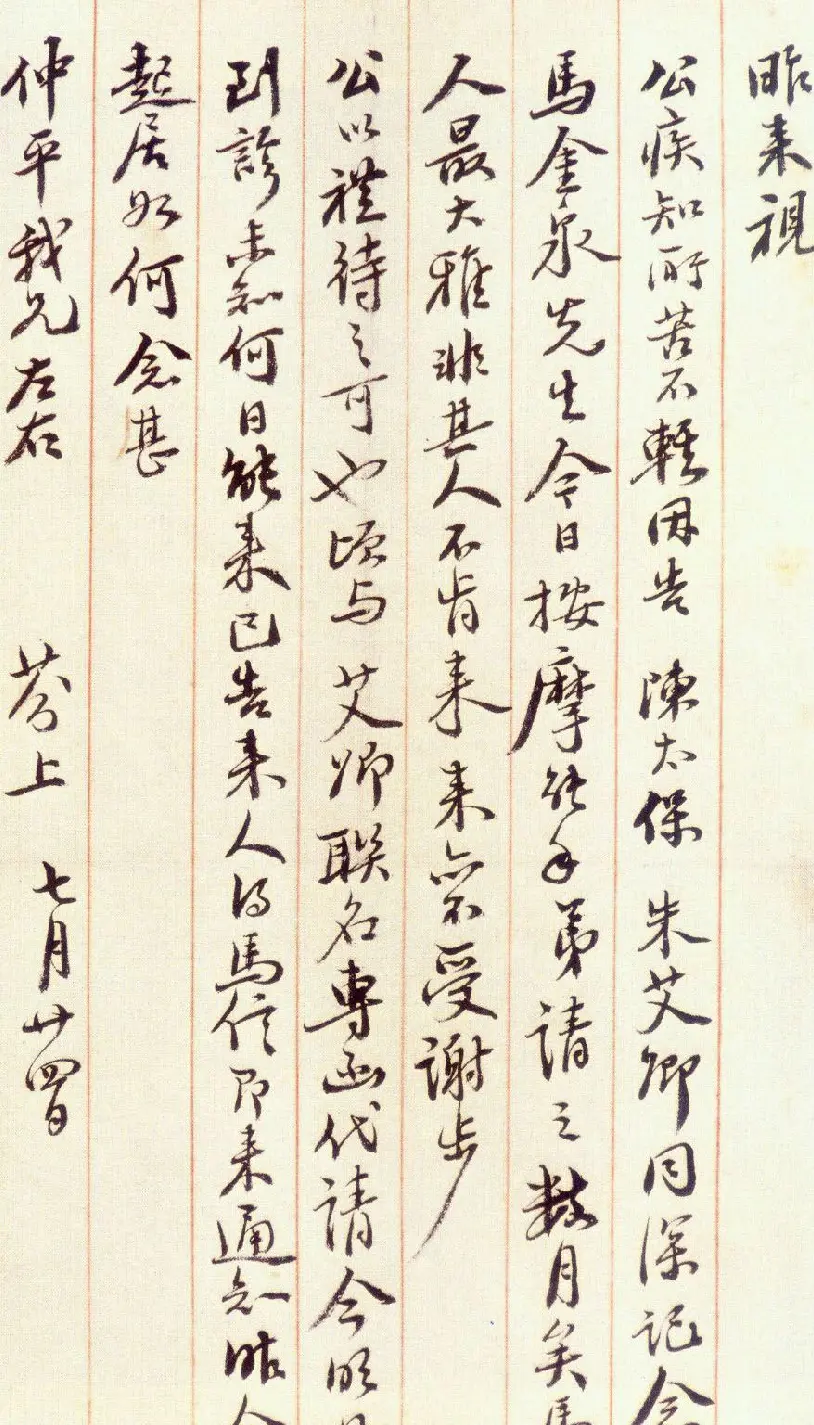 昨来視
公疾知所苦不輕因告 陳太保 朱艾卿同深記念
馬金泉先生今日按摩能手弟請之数月矣馬
人最大雅非其人不肯来来亦不受謝步
公以禮待之可也頃与 艾卿聯名專函代請今明日
到診未知何日能来已告来人得馬信即来通知昨今
起居如何念甚
仲平我兄左右 芬上 七月廿四日